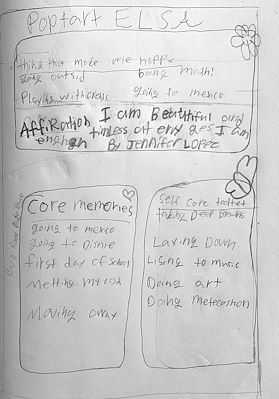 Poptart ELSA
thing that make me happy
going outsid being mosh!
Playing with going to mexico
AffiRation I am Beautiful and
timless at evry ges I am
enogh By JenNifer LOPez
Core memories
going to mexico
going to Disnie
first day of School
Metting my
Moving away
Self Core
taking Deep Breths
Laying Down
Lising to music
Doing art
Doing metecastion